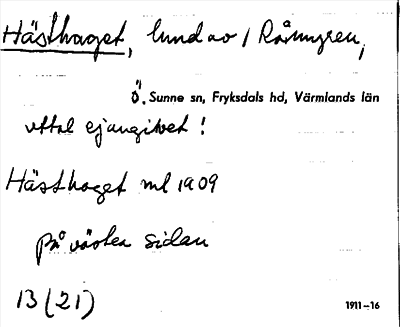 Hästhaget, lund av / Råmyren,
Ö. Sunne sn, Fryksdals hd, Värmlands län
uttal ej angivet!
Hästhaget ml 1909
på västra sidan
13 (21) 1911-16